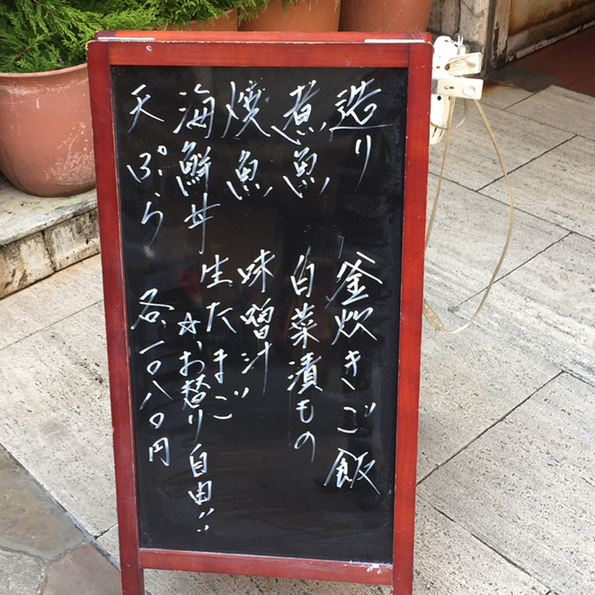 造り
煮魚
焼魚
海鮮丼
天ぷら
釜炊きご飯
白菜漬もの
味噌汁
生たまご
☆お替り自由!!
各、一〇八〇円